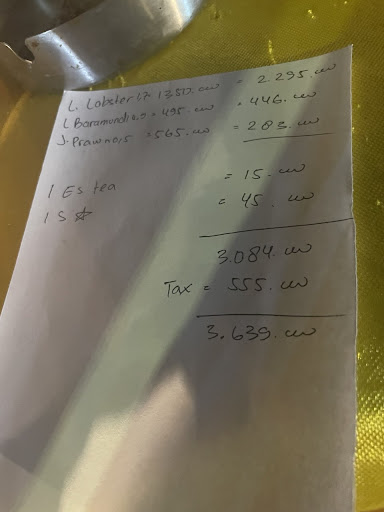 L. Lobster 1.7 1350.00 = 2.295.00
L Baramundi 0.9 = 495.00 = 446.00
J. Prawn 0.5 = 565.00 = 283.00
1 Es tea = 15.00
1 S ☆ = 45.00
3.084.00
Tax = 555.00
3.639.00